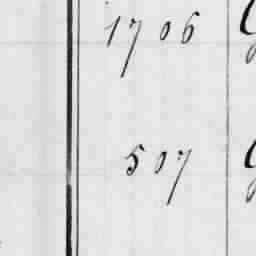 1706
507